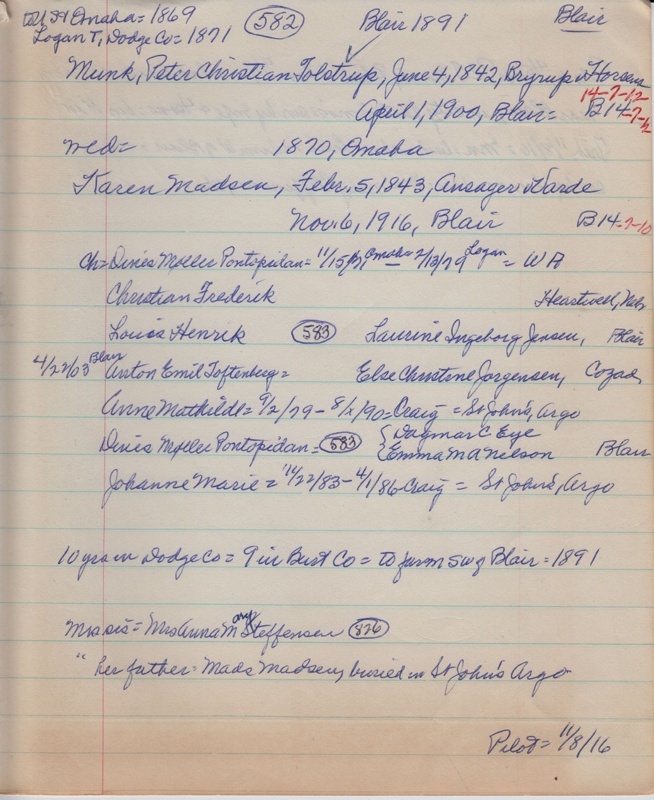 to US & Omaha = 1869 582 Blair 1891 Blair
Logan T, Dodge Co = 1871
Munk, Peter Christian Tolstrup, June 4, 1842, Bryrup Horsens
14-7-12
April 1, 1900, Blair = B14-7-12
Wed = 1870, Omaha
Karen Madsen, Febr. 5, 1843, Ansager Varde
Nov. 6, 1916, Blair B14-7-10
Ch = Dines Moller Pontopidan = 11/15/71 Omaha 2/13/79 Logan = WA
Christian Frederik Heartwell, Neb
Louis Henrik 583 Laurine Ingeborg Jensen, Blair
4/22/03 Blair Anton Emil Toftenberg = Else Christine Jorgensen, Cozad
Anne Mathilde = 9/2/79 - 8/2/90 = Craig = St John's, Argo
Dines Moller Pontopidan = 583 { Dagmar C Eye
Emma M A Nilson Blair
Johanne Marie = 11/22/83 - 4/1/86 Craig = St John's, Argo
10 yrs in Dodge Co = 9 in Burt Co = to farm SW of Blair = 1891
Mrs sis = Mrs Anna Mary Steffensen 826
" her father = Mads Madsen, buried in St John's Argo
Pilot = 11/8/16